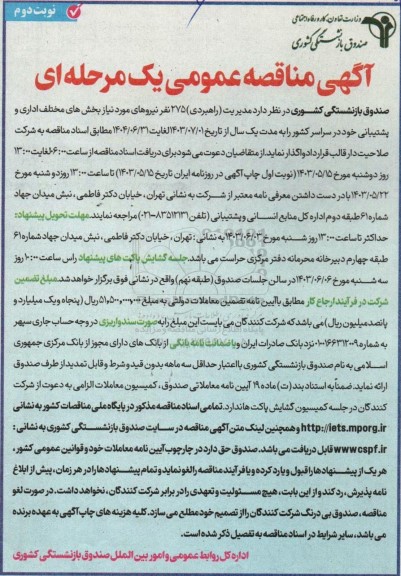 نوبت دوم
وزارت تعاون، کار و رفاه اجتماعی
صندوق بازنشستگی کشوری
آگهی مناقصه عمومی یک مرحله ای
صندوق بازنشستگی کشوری در نظر دارد مدیریت (راهبردی) ۲۷۵ نفر نیروهای مورد نیاز بخش های مختلف اداری و
پشتیبانی خود در سراسر کشور را به مدت یک سال از تاریخ ۱۴۰۳/۰۷/۰۱ لغایت ۱۴۰۴/۰۶/۳۱ مطابق اسناد مناقصه به شرکت
صلاحیت دار قالب قرارداد واگذار نماید. از متقاضیان دعوت می شود برای دریافت اسناد مناقصه از ساعت ۰۶:۰۰ لغایت ۱۳:۰۰
روز دوشنبه مورخ ۱۴۰۳/۰۵/۱۵ (نوبت اول چاپ آگهی در روزنامه ایران تاریخ ۱۴۰۳/۰۵/۱۵) تا ساعت ۱۳:۰۰ روز دوشنبه مورخ
۱۴۰۳/۰۵/۲۲ با در دست داشتن معرفی نامه معتبر از شرکت به نشانی تهران، خیابان دکتر فاطمی، نبش میدان جهاد
شماره ۶۱ طبقه دوم اداره کل منابع انسانی و پشتیبانی (تلفن ۸۳۵۱۲۱۳۱-۰۲۱) مراجعه نمایند. مهلت تحویل پیشنهاد:
حداکثر تا ساعت ۱۳:۰۰ روز شنبه مورخ به نشانی: تهران، خیابان دکتر فاطمی، نبش میدان جهاد شماره ۶۱
طبقه چهارم دبیرخانه محرمانه دفتر مرکزی حراست می باشد. جلسه گشایش پاکت های پیشنهاد راس ساعت ۱۰:۰۰ روز
سه شنبه مورخ ۱۴۰۳/۰۶/۰۶ در سالن جلسات صندوق (طبقه نهم) واقع در نشانی فوق برگزار خواهد شد. مبلغ تضمین
شرکت در فرآیند ارجاع کار مطابق با آیین نامه تضمین معاملات دولتی به مبلغ ریال (پنجاه و یک میلیارد و
پانصد میلیون ریال) می باشد که شرکت کنندگان می بایست این مبلغ را به صورت سند واریزی در وجه حساب جاری سپهر
به شماره نزد بانک صادرات ایران و یا ضمانت نامه بانکی از بانک های دارای مجوز از بانک مرکزی جمهوری
اسلامی به نام صندوق بازنشستگی کشوری با اعتبار حداقل سه ماهه بدون قید و شرط و قابل تمدید از طرف صندوق
ارائه نماید. ضمناً به استناد بند (ت) ماده ۱۹ آیین نامه معاملاتی صندوق، کمیسیون معاملات الزامی به دعوت از شرکت
کنندگان در جلسه کمیسیون گشایش پاکت ها ندارد. تمامی اسناد مناقصه مذکور در پایگاه ملی مناقصات کشور به نشانی
http://iets.mporg.ir و همچنین لینک متن آگهی مناقصه در سایت صندوق بازنشستگی کشوری به نشانی:
www.cspf.ir قابل دریافت می باشد. صندوق حق دارد در چارچوب آیین نامه معاملات خود و قوانین عمومی کشور،
هر یک از پیشنهادها را قبول و یا رد کرده و یا فرآیند مناقصه را لغو نماید و تمام پیشنهادها را در هر زمان، پیش از ابلاغ
نامه پذیرش، رد کند و از این بابت، هیچ مسئولیت و تعهدی را در برابر شرکت کنندگان، نخواهد داشت. در صورت لغو
مناقصه، صندوق بی درنگ شرکت کنندگان را از تصمیم خود مطلع می سازد. کلیه هزینه های چاپ آگهی به عهده برنده
می باشد، سایر شرایط در اسناد مناقصه به تفصیل ذکر شده است.
اداره کل روابط عمومی و امور بین الملل صندوق بازنشستگی کشوری